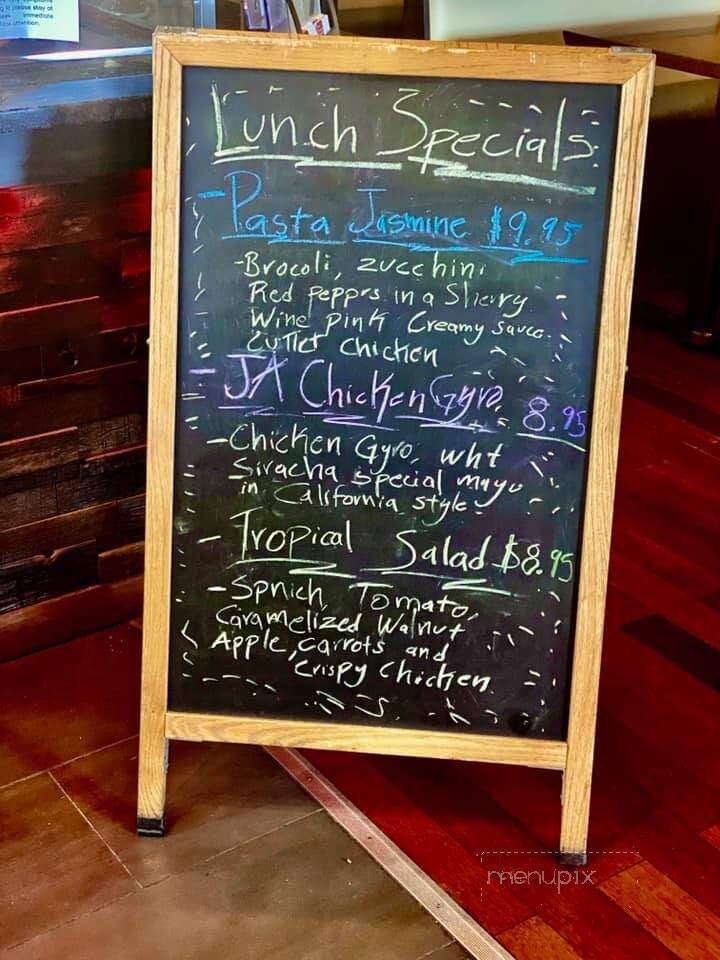 Lunch Specials
- Pasta Jasmine $9.95
- Brocoli, zucchini
Red Pepprs in a Sherry
Wine Pink Creamy sauce.
Cutlet Chicken
- JA Chicken Gyro. 8.95
- Chicken Gyro, wht
Siracha special mayo
in California style.
- Tropical Salad $8.95
- Spnich Tomato,
Caramelized Walnut
Apple, Carrots and
Crispy Chicken
menupix